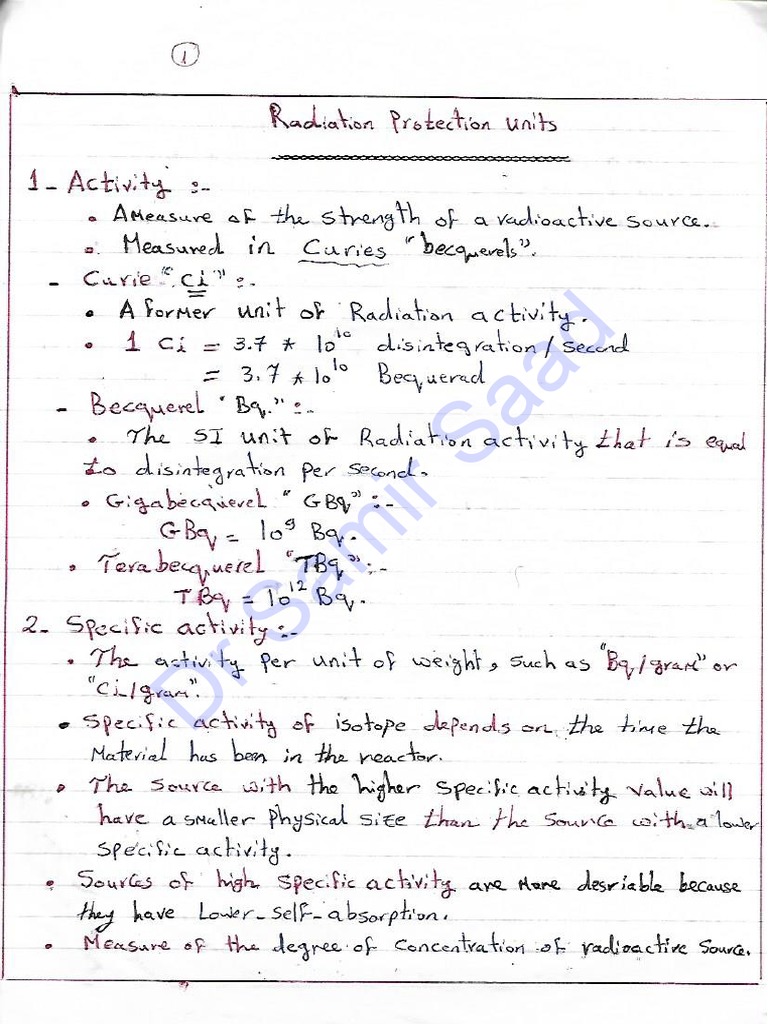 1
Radiation Protection units
1- Activity :-
• A Measure of the strength of a radioactive source.
• Measured in Curies "becquerels".
- Curie "Ci" :-
• A former unit of Radiation activity.
• 1 Ci = 3.7 * 10^10 disintegration/second
= 3.7 * 10^10 Bequerad
- Becquerel "Bq." :-
• The SI unit of Radiation activity that is equal
to disintegration per second.
• Gigabecquerel "GBq" :-
GBq = 10^9 Bq.
• Terabecquerel "TBq" :-
TBq = 10^12 Bq.
2- Specific activity :-
• The activity per unit of weight, such as "Bq/gram" or
"Ci/gram".
• Specific activity of isotope depends on the time the
Material has been in the reactor.
• The source with the higher specific activity value will
have a smaller physical size than the source with a lower
specific activity.
• Sources of high specific activity are more desriable because
they have Lower-self-absorption.
• Measure of the degree of concentration of radioactive source.
Dr Samir Saad